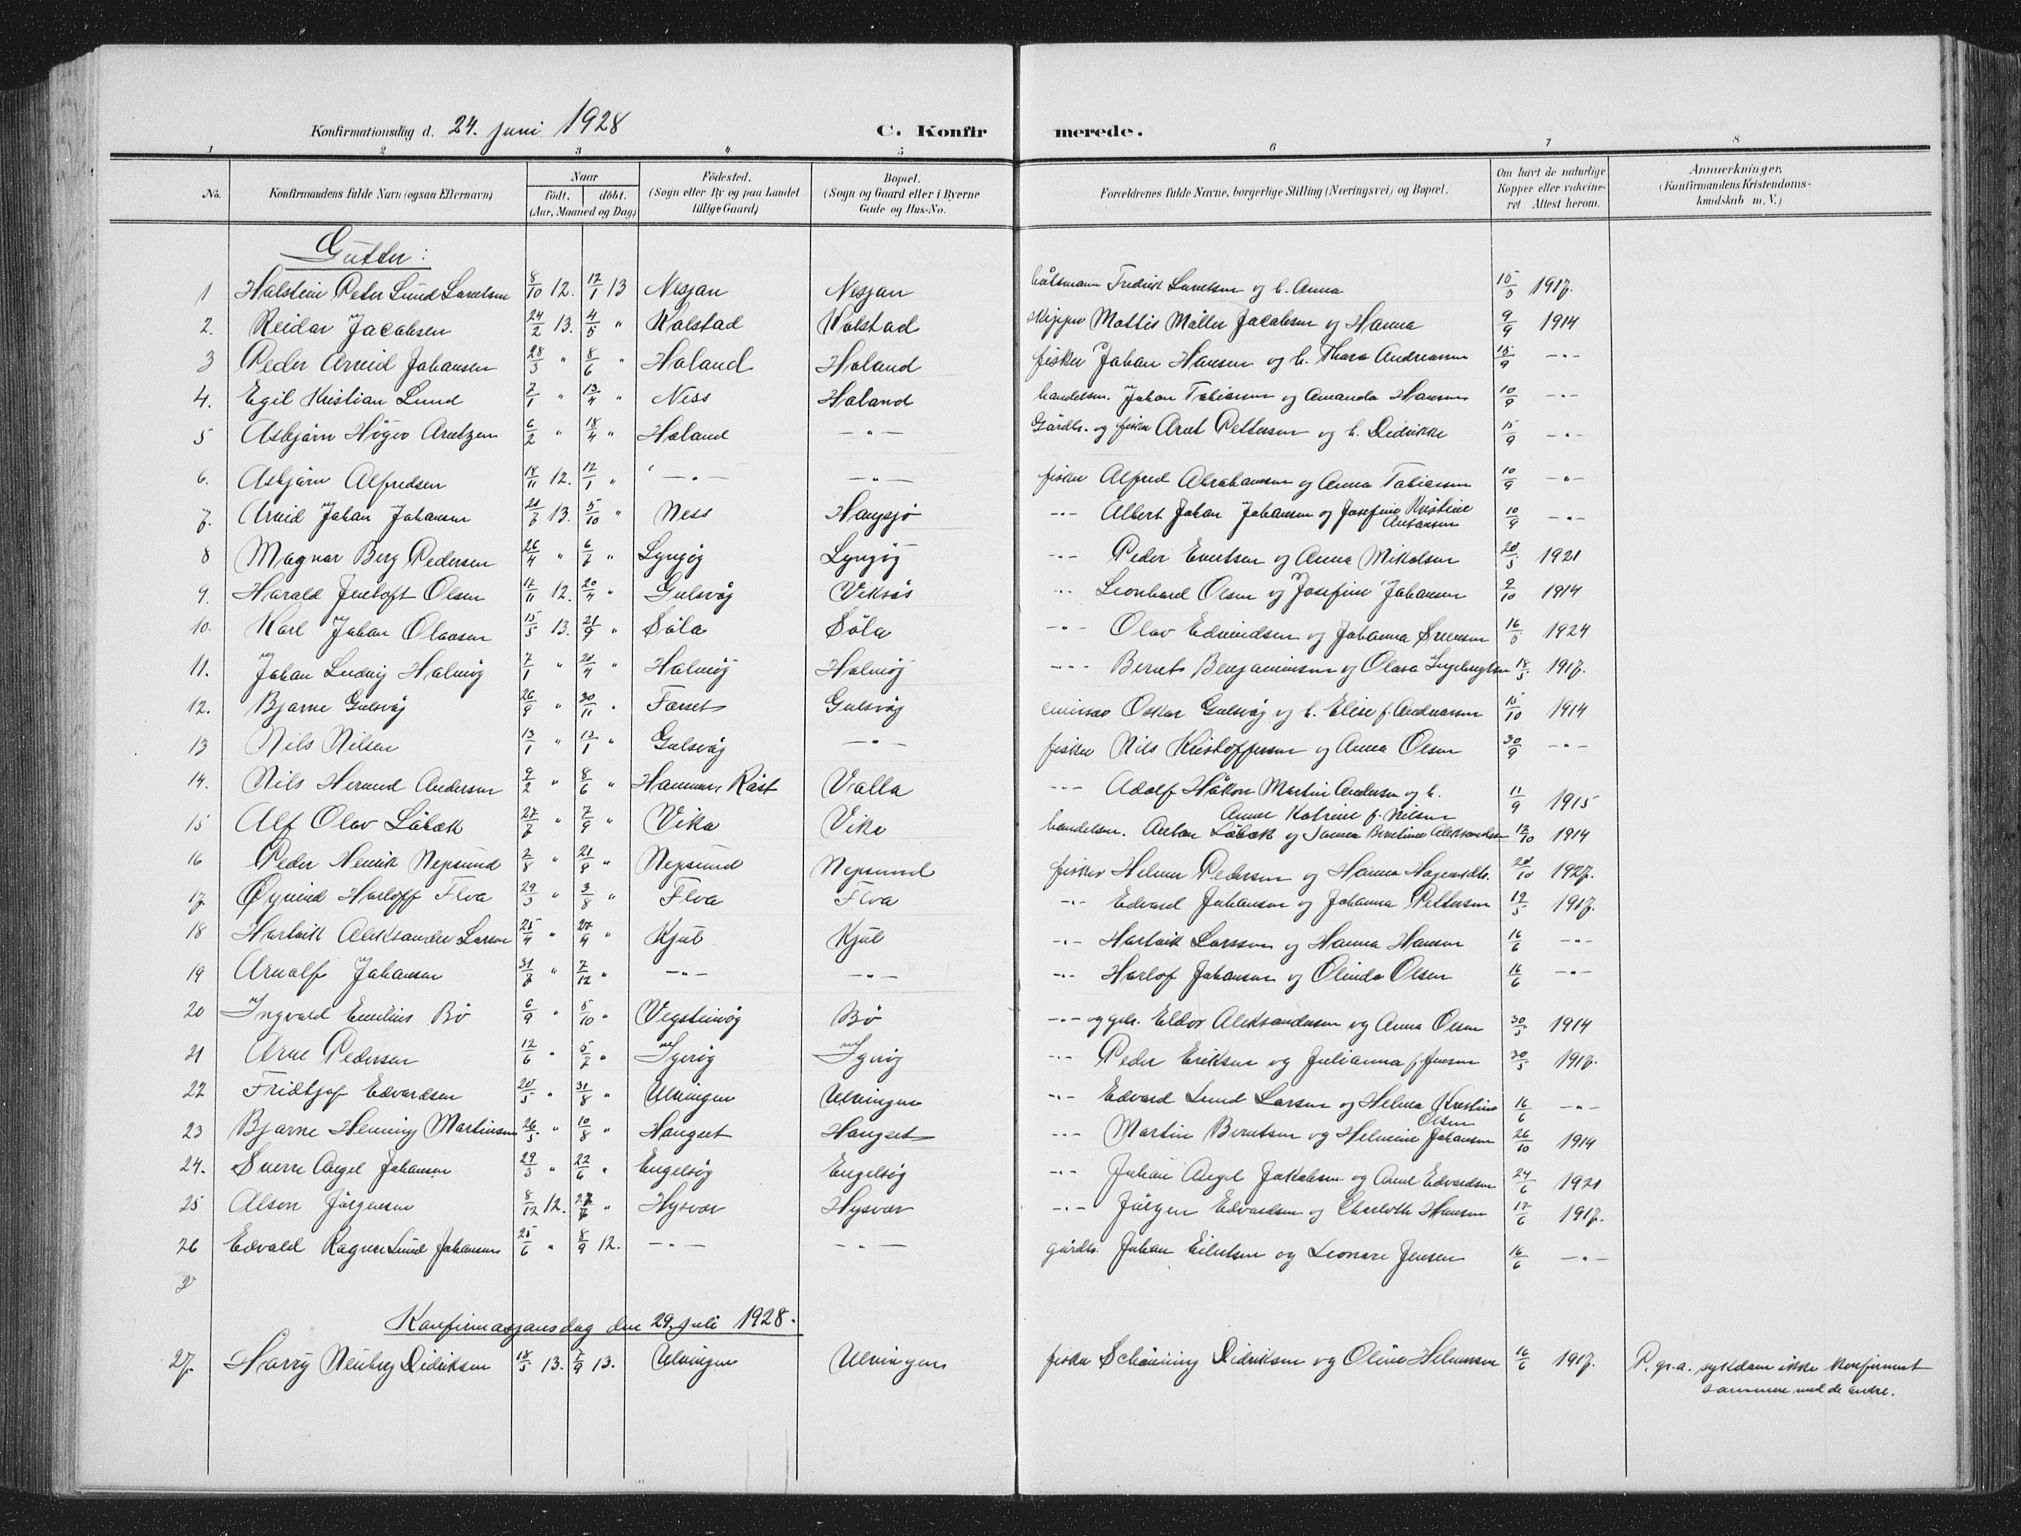 Konfirmationsdag d. 24. juni 1928 C. Konfirmerede.
1 2 3 4 5 6 7 8
No. Konfirmandens fulde Navn (ogsaa Efternavn) Naar født. døbt. (Aar, Maaned og Dag) Fødested. (Sogn eller By og paa Landet tillige Gaard) Bopæl. (Sogn og Gaard eller i Byerne Gade og Hus-No. Forældrenes fulde Navne, borgerlige Stilling (Næringsvei) og Bopæl. Om havt de naturlige Kopper eller vakcineret Attest herom. Anmerkninger, (Konfirmandens Kristendomskundskab m. V.)
Gutter:
1 Halstein Peter Lund 8/10 12. 12/1 13 Nesjan Nesjan Fredrik og h. Anna 15/5 1917.
2. Reidar Jacobsen 24/2 13. 4/5 " Kolstad Kolstad skipper Mattis Møller Jacobsen og Hanna 9/9 1914
3 Peder Arvid Johansen 28/3 " 8/6 " Høland Høland fisker Johan Hansen og h. Thora Andreassen 15/9 -"-
4. Egil Kristian Lund 7/1 " 13/4 " Ness Høland handelsm. Johan Tobiassen og Amanda Hansen 10/9 -"-
5 Asbjørn Høger Arntzen 6/2 " 18/4 " Høland -"- Gårdbr. og fisker Arnt Pettersen og h. Didrikke 15/9 -"-
6. Asbjørn Alfredsen 18/11 12. 12/1 " -"- -"- fisker Alfred Abrahamsen og Anna Tobiassen 10/9 -"-
7. Arvid Johan Johansen 13. 5/10 " Ness Haugsjø -"- Albert Johan Johansen og Josefine Kristine Antonsen 10/9 -"-
8 Magnar Berg Pedersen 26/4 " Lyngøy Lyngøy -"- Peder Evertsen og Anna Mikalsen 20/5 1921
9. Harald Jentoft Olsen 17/11 12. 20/4 " Gulsvåg Viksås -"- Leonhard Olsen og Josefine Johansen 2/10 1914
10. Karl Johan Olausen 15/5 13. 21/9 " Søla Søla -"- Olav Edvindsen og Johanna 16/5 1924
11. Johan Ludvig Halmøy 7/1 " 20/4 " Halmøy Halmøy -"- Bernt Benjaminsen og Olava Ingebrigtsen 18/5 1917.
12. Bjarne Gulsvåg 26/9 " 30/11 " Forset Gulsvåg Oskar Gulsvåg og h. Elise f. Andreassen 15/10 1914
13 Nils Nilsen 13/1 " 12/1 " Gulsvåg -"- fisker Nils Kristoffersen og Anna Olsen 30/9 -"-
14. Nils Andersen 9/2 " 8/6 " Røst Valla -"- Adolf Håkon Martin Andersen og h. Anne Katrine f. Nilsen 11/9 1915
15 Alf Olav Løbæk 27/7 " 7/9 " Vika Vika handelsm. Anton Løbæk og Aleksandersen 17/10 1914
16 Peder Henrik Nepsund 2/8 " 21/9 " Nepsund Nepsund fisker Helmer Pedersen og Hanna 20/10 1927.
17. Øyvind Harloff Flva 29/3 " 3/8 " Flva Flva -"- Edvard Johansen og Johanna Pettersen 19/5 1917.
18 Hartvik Aleksander Larsen 25/4 " 27/4 " Kjul Kjul -"- Hartvik Larssen og Hanna Hansen 16/6 -"-
19 Arnolf Johansen 31/7 " 7/12 " -"- -"- -"- Harlof Johansen og Olinda Olsen 16/6 -"-
20 Ingvald Emilius Bø 6/9 " 5/10 " Vegsteinøy Bø -"- og gbr. Eldor Aleksandersen og Anna Olsen 30/5 1914
21 Arne Pedersen 12/6 " " Igerøy Igerøy -"- Peder Eriksen og Julianna f. Jensen 30/5 1917.
22 Fridtjof Edvardsen 20/5 " 31/8 " Ulvingen Ulvingen -"- Edvard Lund Larsen og Helma Kristine Olsen 16/6 -"-
23 Bjarne Henning Martinsen 26/5 " 10/8 " Haugset Haugset -"- Martin Berntsen og Helmine Johansen 26/10 1914
24. Sverre Angel Johansen 29/3 " 22/6 " Engelsøy Engelsøy -"- Johan Angel Jakobsen og Edvardsen 24/6 1921
25 Alson Jørgensen 8/12 12. " Hysvær Hysvær -"- Jørgen Edvardsen og Charlotte Hansen 17/6 1917.
26 Edvald Ragnar Lund Johansen 25/6 " 8/9 12. -"- -"- gårdbr. Johan Eilertsen og Leonore Jensen 16/6 -"-
Konfirmasjonsdag den 29. juli 1928.
27. Harry Neuberg Didriksen 18/5 13. 7/9 13. Ulvingen Ulvingen fisker Schønning Didriksen og Oline Helmersen 16/6 1917. P. gr. a. sykdom ikke konfirmert
sammen med de andre.